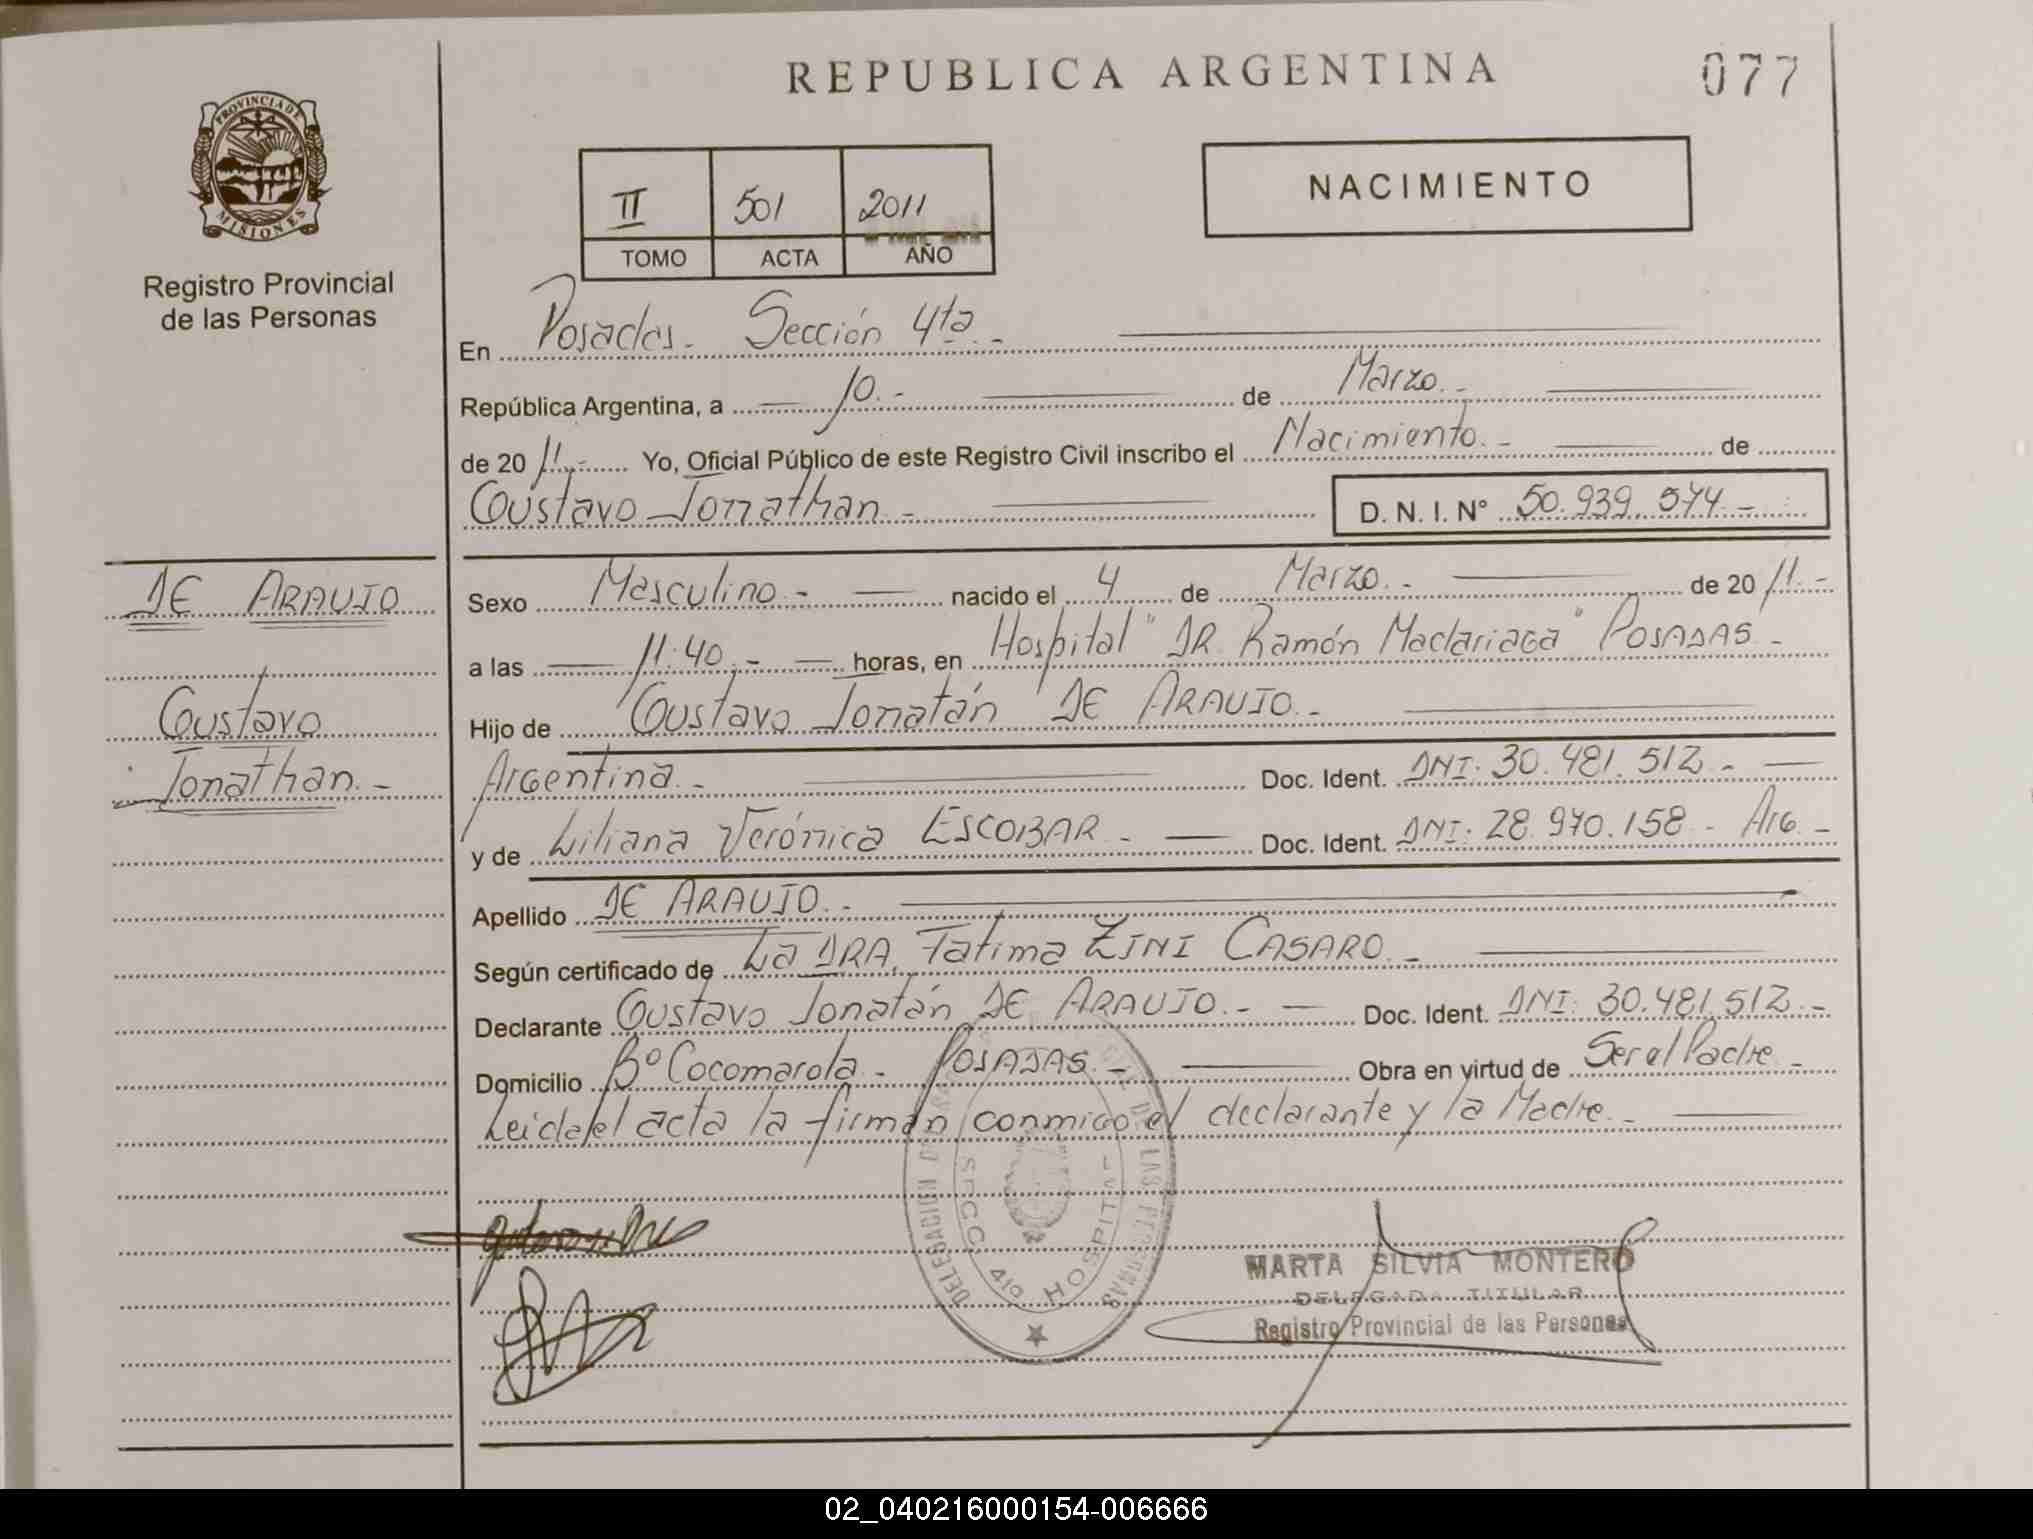 REPUBLICA ARGENTINA
077
PROVINCIA DE
MISIONES
Registro Provincial
de las Personas
II 501 2011
TOMO ACTA AÑO
NACIMIENTO
En Posadas.- Sección 4ta.-
República Argentina, a 10.- de Marzo.-
de 20 11.- Yo, Oficial Público de este Registro Civil inscribo el Nacimiento.- de
Gustavo Jonathan.- D. N. I. Nº 50.939.574.-
DE ARAUJO
Gustavo
Jonathan.-
Sexo Masculino.- nacido el 4 de Marzo.- de 20 11.-
a las 11:40.- horas, en Hospital "DR. Ramón Madariaga" POSADAS.-
Hijo de Gustavo Jonatán DE ARAUJO.-
Argentina.- Doc. Ident. DNI: 30.481.512.-
y de Liliana Verónica ESCOBAR.- Doc. Ident. DNI: 28.970.158.- Arg.-
Apellido DE ARAUJO.-
Según certificado de La DRA. Fatima ZINI CASARO.-
Declarante Gustavo Jonatán DE ARAUJO.- Doc. Ident. DNI: 30.481.512.-
Domicilio Bº Cocomarola.- POSADAS.- Obra en virtud de Ser el Padre.-
Leida el acta la firman conmigo el declarante y la Madre.-
DELEGACION DE LAS PERSONAS
SECC. 4ta HOSPITAL
MARTA SILVIA MONTERO
DELEGADA TITULAR
Registro Provincial de las Personas
02_040216000154-006666